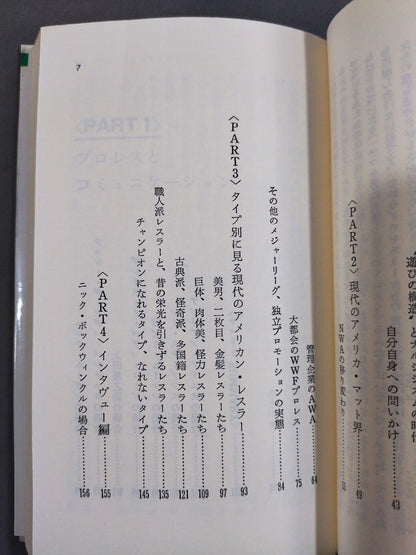 遊びの構造とナルシスムの時代
自分自身への問いかけ………43
〈PART2〉現代のアメリカ・マット界………49
NWAの移り変わり………55
管理企業のAWA………64
大都会のWWFプロレス………75
その他のメジャーリーグ、独立プロモーションの実態………84
〈PART3〉タイプ別に見る現代のアメリカン・レスラー………93
美男、二枚目、金髪レスラーたち………97
巨体、肉体美、怪力レスラーたち………109
古典派、怪奇派、多国籍レスラーたち………121
職人派レスラーと、昔の栄光を引きずるレスラーたち………135
チャンピオンになれるタイプ、なれないタイプ………145
〈PART4〉インタヴュー編………155
ニック・ボックウィンクルの場合………156
7
〈PART1〉
プロレスと
コミュニケーション